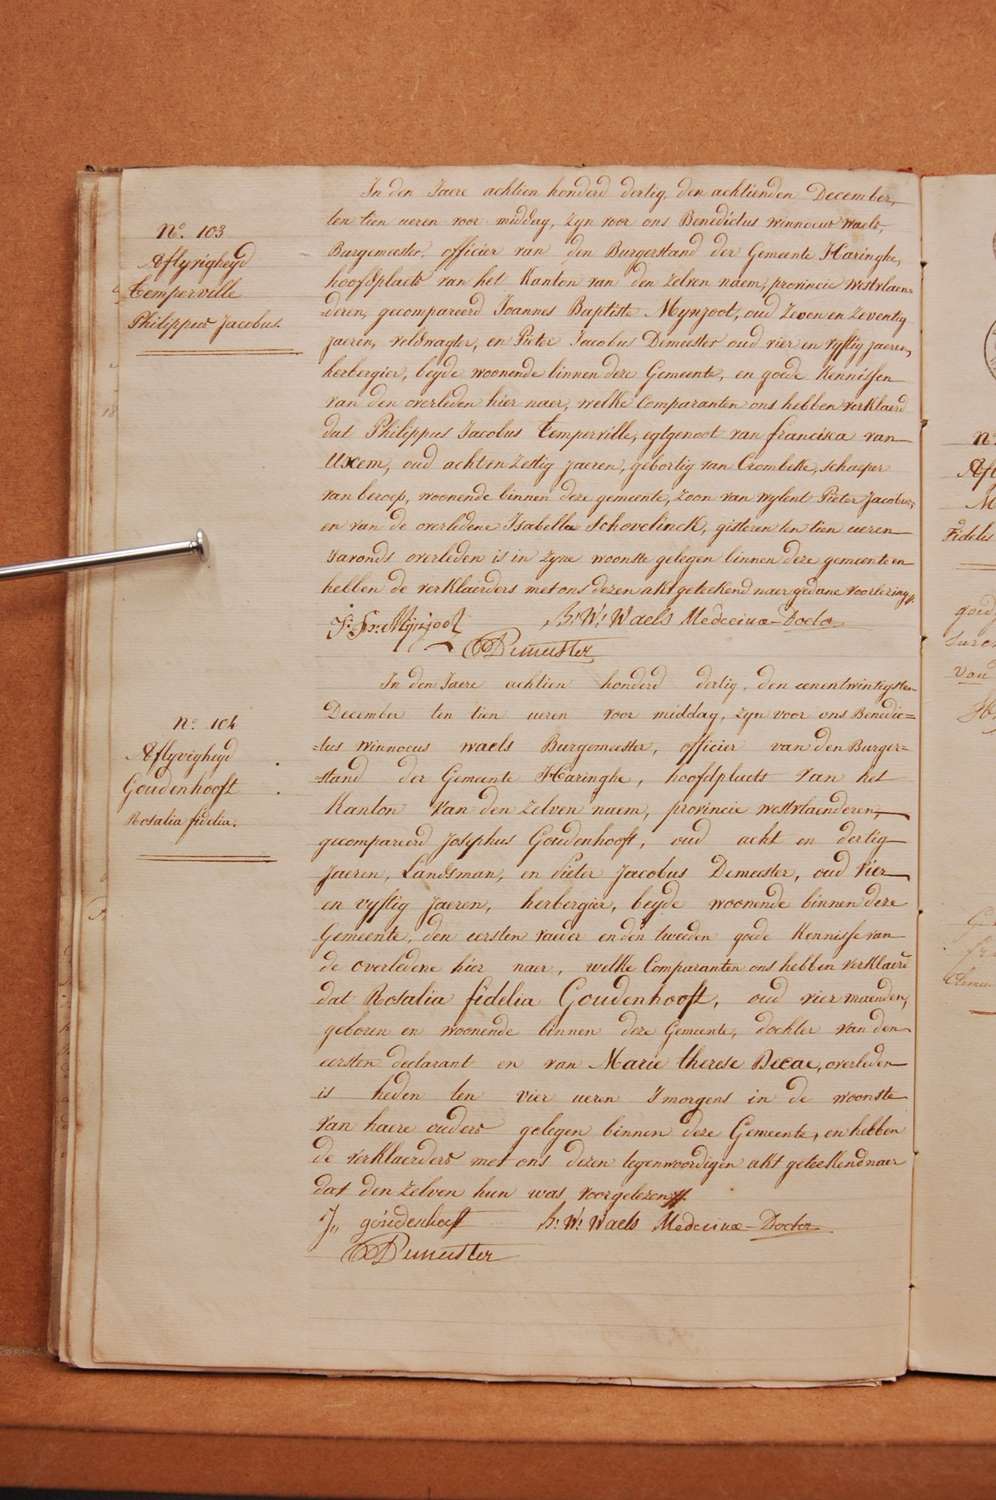 N.º 103
Aflyvigheyd
Temperville
Philippus Jacobus.
In den Jaere achtien honderd dertig, den achtienden December,
ten tien ueren voor middag, zyn voor ons Benedictus Winnocus Waels,
Burgemeester, officier van den Burgerstand der Gemeente Haringhe,
hoofdplaets van het Kanton van den zelven naem, provincie Westvlaen=
deren, gecompareerd Joannes Baptiste Mynjoot, oud zeven en zeventig
jaeren, veldwagter, en Pieter Jacobus Demeester oud vier en vyftig jaeren,
herbergier, beyde woonende binnen deze Gemeente, en goede Kennissen
van den overleden hier naer, welke Comparanten ons hebben verklaerd
dat Philippus Jacobus Temperville, egtgenoot van francisca van
Uxem, oud acht en zestig jaeren, gebortig van Crombeke, schaeper
van beroep, woonende binnen deze gemeente, zoon van wylent Pieter Jacobus,
en van de overledene Isabella Schovelinck, gisteren ten tien ueren
savonds overleden is in zyne woonste gelegen binnen deze gemeente en
hebben de verklaerders met ons dezen akt geteekend naer gedane voorlezing.
J: Bte Mynjoot B: W: Waels Medecinæ-Doctor
PJDemeester
N.º 104
Aflyvigheyd
Goudenhooft
Rosalia fidelia.
In den Jaere achtien honderd dertig, den eenentwintigsten
December ten tien ueren voor middag, zyn voor ons Benedic=
=tus Winnocus Waels Burgemeester, officier van den Burger=
stand der Gemeente Haringhe, hoofdplaets van het
Kanton van den zelven naem, provincie Westvlaenderen,
gecompareerd Josephus Goudenhooft, oud acht en dertig
Jaeren, Landsman, en Pieter Jacobus Demeester, oud vier
en vyftig jaeren, herbergier, beyde woonende binnen deze
Gemeente, den eersten vaeder en den tweeden goede Kennisse van
de overledene hier naer, welke Comparanten ons hebben verklaerd
dat Rosalia fidelia Goudenhooft, oud vier maenden,
geboren en woonende binnen deze Gemeente, dochter van den
eersten declarant en van Marie therese Decae, overleden
is heden ten vier ueren smorgens in de woonste
van haere ouders gelegen binnen deze Gemeente, en hebben
de verklaerders met ons dezen tegenwoordigen akt geteekend naer
dat den zelven hun was voorgelezen.
J,, goudeshooft B: W: Waels Medecinæ-Doctor
PJDemeester